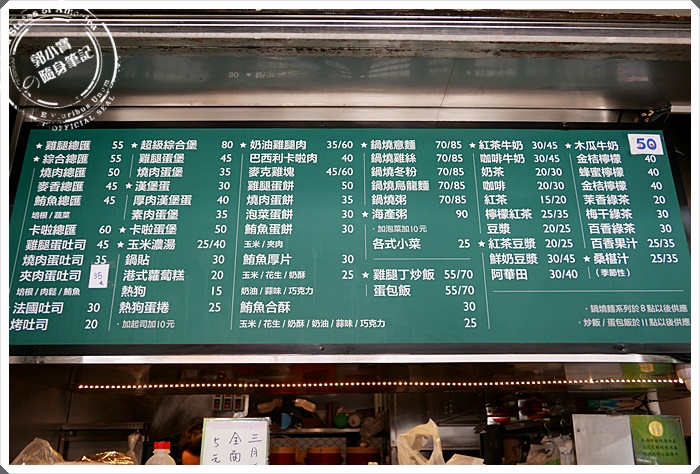 郭小寶
の隨身筆記
★ 雞腿總匯 55
★ 綜合總匯 55
燒肉總匯 50
麥香總匯 45
鮪魚總匯 45
培根 / 蔬菜
卡啦總匯 60
雞腿蛋吐司 45
燒肉蛋吐司 35
夾肉蛋吐司 35元
培根 / 肉鬆 / 鮪魚
法國吐司 30
烤吐司 20
★ 超級綜合堡 80
雞腿蛋堡 50
燒肉蛋堡 35
★ 漢堡蛋 30
厚肉漢堡蛋 40
素肉蛋堡 35
★ 卡啦蛋堡 50
★ 玉米濃湯 25/40
鍋貼 30
港式蘿蔔糕 20
熱狗 15
熱狗蛋捲 25
· 加起司加10元
★ 奶油雞腿肉 35/60
巴西利卡啦肉 40
麥克雞塊 45/60
雞腿蛋餅 50
燒肉蛋餅 35
泡菜蛋餅 30
鮪魚蛋餅 30
玉米 / 夾肉
鮪魚厚片 30
玉米 / 花生 / 奶酥 25
奶油 / 蒜味 / 巧克力
鮪魚合酥 30
玉米 / 花生 / 奶酥 / 奶油 / 蒜味 / 巧克力 25
★ 鍋燒意麵 70/85
鍋燒雞絲 70/85
鍋燒冬粉 70/85
鍋燒烏龍麵 70/85
鍋燒粥 70/85
★ 海產粥 90
· 加泡菜加10元
各式小菜 25
★ 雞腿丁炒飯 55/70
蛋包飯 55/70
★ 紅茶牛奶 30/45
咖啡牛奶 30/45
奶茶 20/30
咖啡 20/30
紅茶 15/20
檸檬紅茶 25/35
豆漿 20/25
★ 紅茶豆漿 20/25
鮮奶豆漿 30/45
阿華田 30/40
★ 木瓜牛奶 50
金桔檸檬 40
蜂蜜檸檬 40
金桔綠茶 40
茉香綠茶 20
梅干綠茶 30
百香綠茶 30
百香果汁 25/35
★ 桑椹汁 25/35
（季節性）
· 鍋燒麵系列於8點以後供應
· 炒飯 / 蛋包飯於11點以後供應
三月
全面
5元